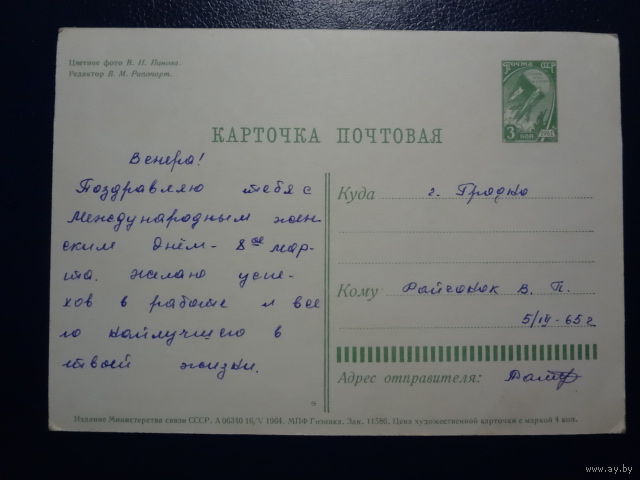 Цветное фото В. П. Панова.
Редактор В. М. Рапопорт.
ПОЧТА СССР
3 коп
1961
КАРТОЧКА ПОЧТОВАЯ
Венера!
Поздравляю тебя с
Международным жен-
ским днём - 8ое мар-
та. Желаю успе-
хов в работе и все
го наилучшего в
твоей жизни.
Куда г. Гродно
Кому В. П.
5/III-65 г
Адрес отправителя:
Издание Министерства связи СССР. А 06340 16/V 1964. МПФ Гознака. Зак. 11586. Цена художественной карточки с маркой 4 коп.
www.ay.by